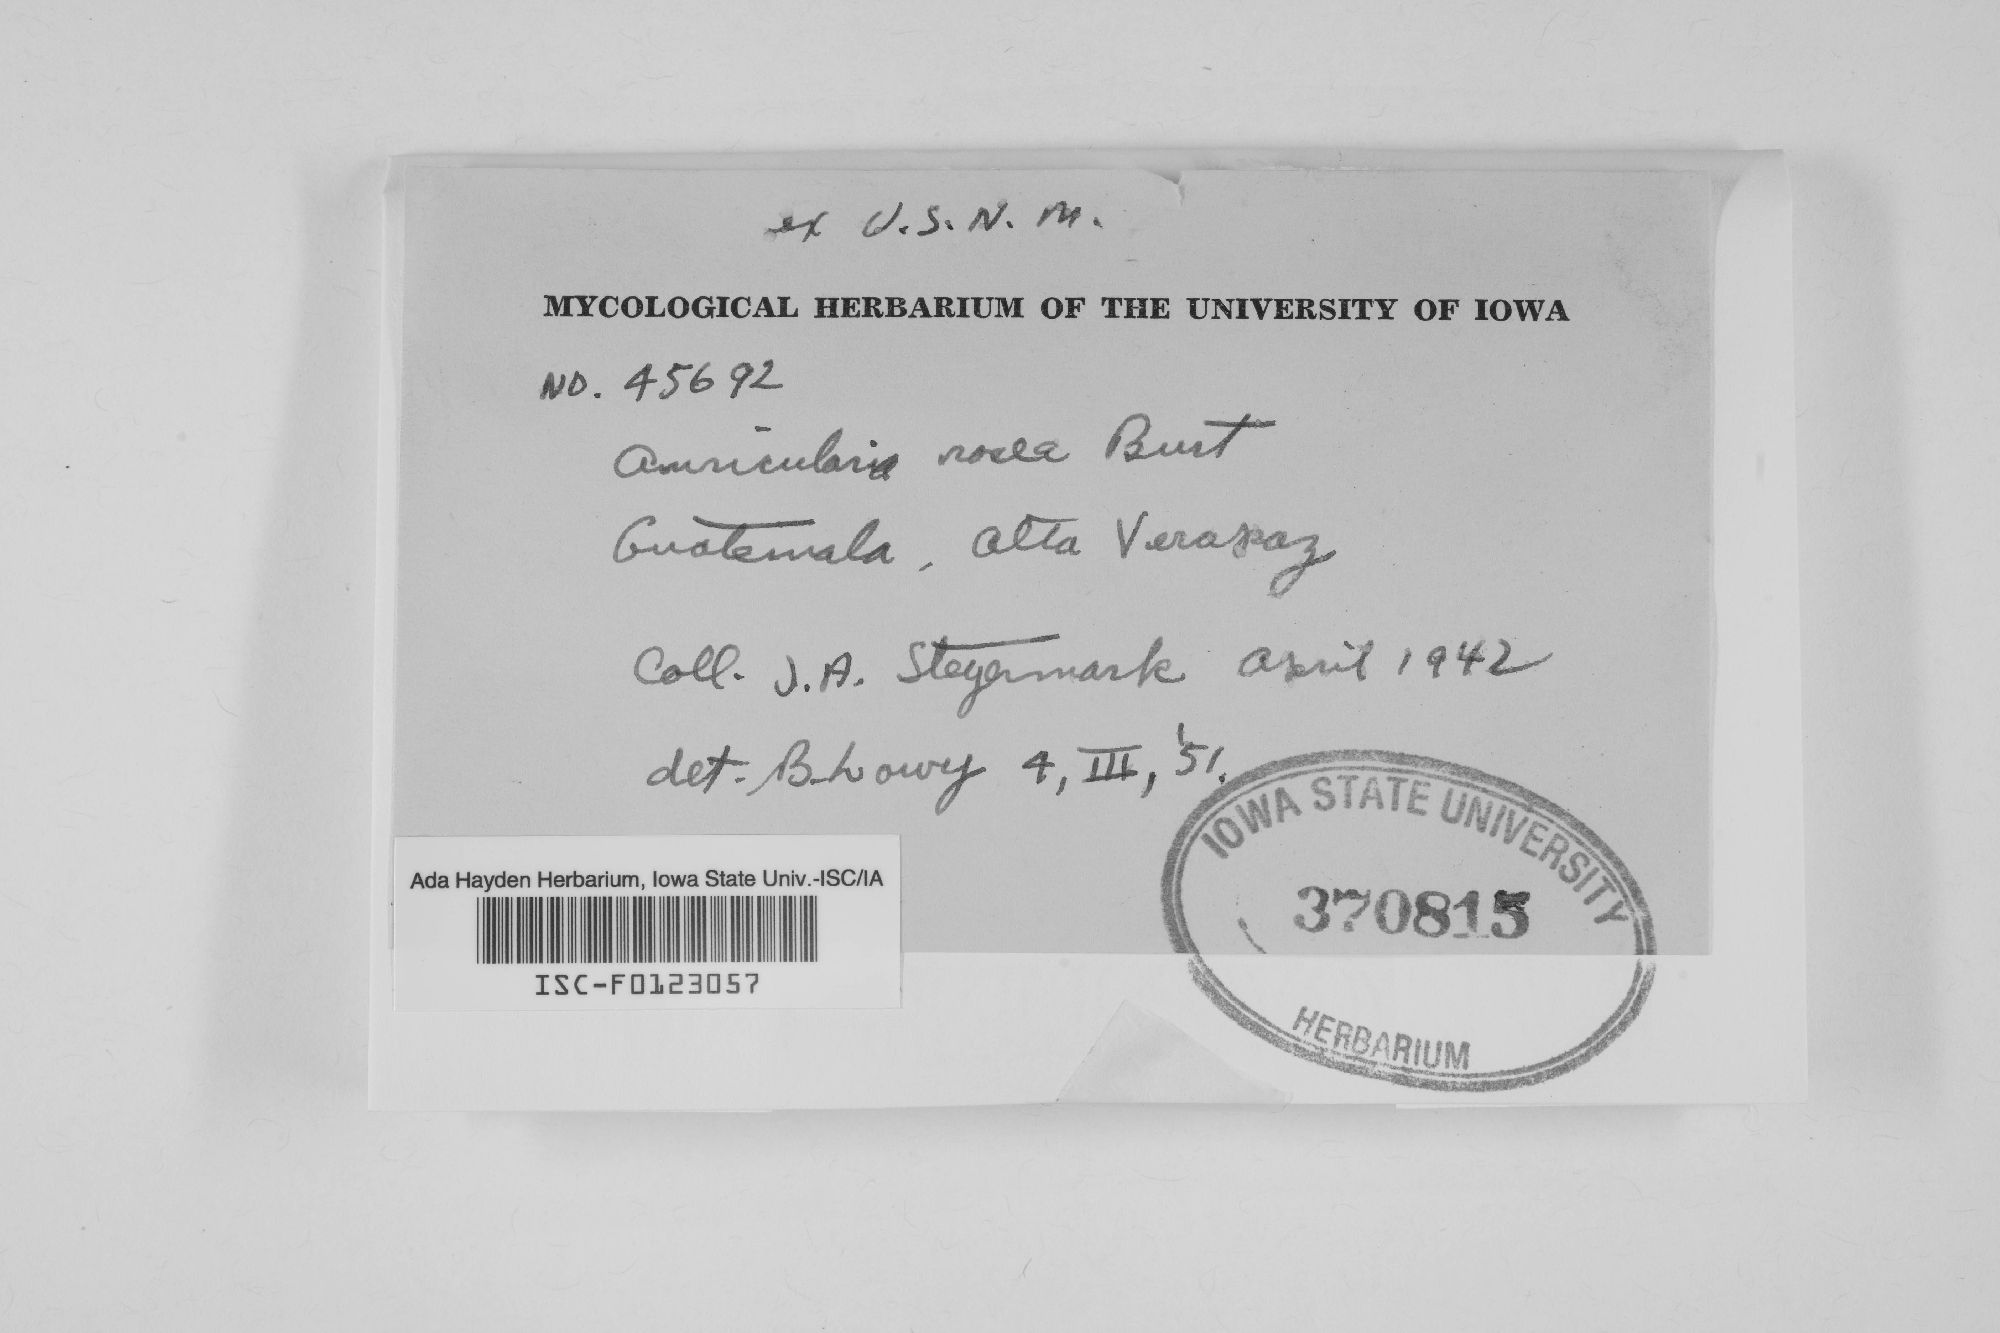 ex U.S.N.M.
MYCOLOGICAL HERBARIUM OF THE UNIVERSITY OF IOWA
NO. 45692
Auricularia rosea Burt
Guatemala, Alta Verapaz
Coll. J.A. Steyermark April 1942
det. B. Lowy 4, III, '51.
IOWA STATE UNIVERSITY
370815
HERBARIUM
Ada Hayden Herbarium, Iowa State Univ.-ISC/IA
ISC-F0123057